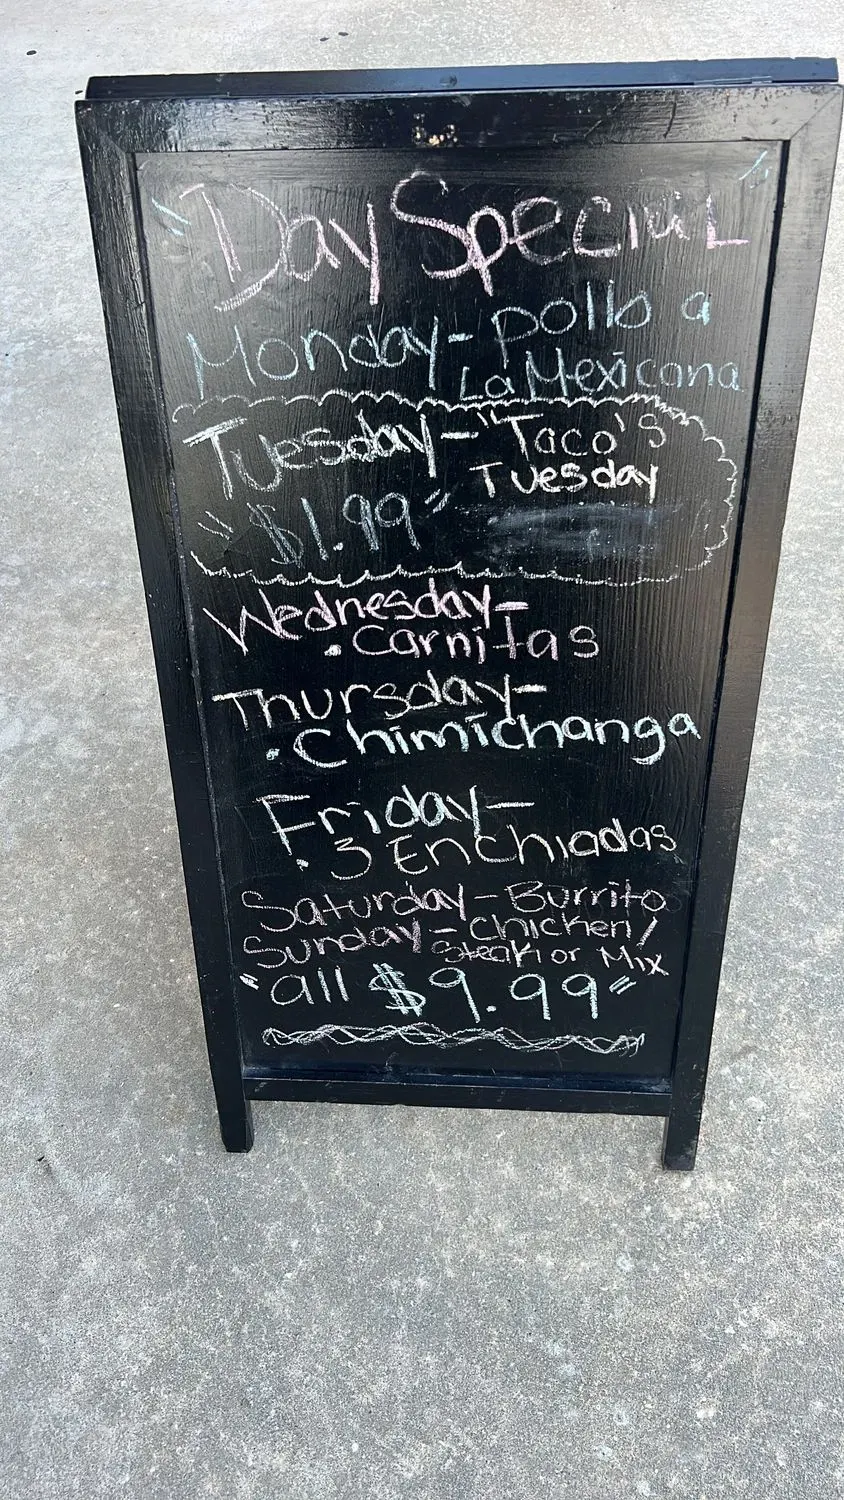 "Day Special"
Monday - pollo a
La Mexicana
Tuesday - "Taco's
Tuesday
"$1.99"
Wednesday -
. Carnitas
Thursday -
. Chimichanga
Friday -
. 3 Enchiadas
Saturday - Burrito
Sunday - Chicken/
Steak or Mix
"all $9.99"